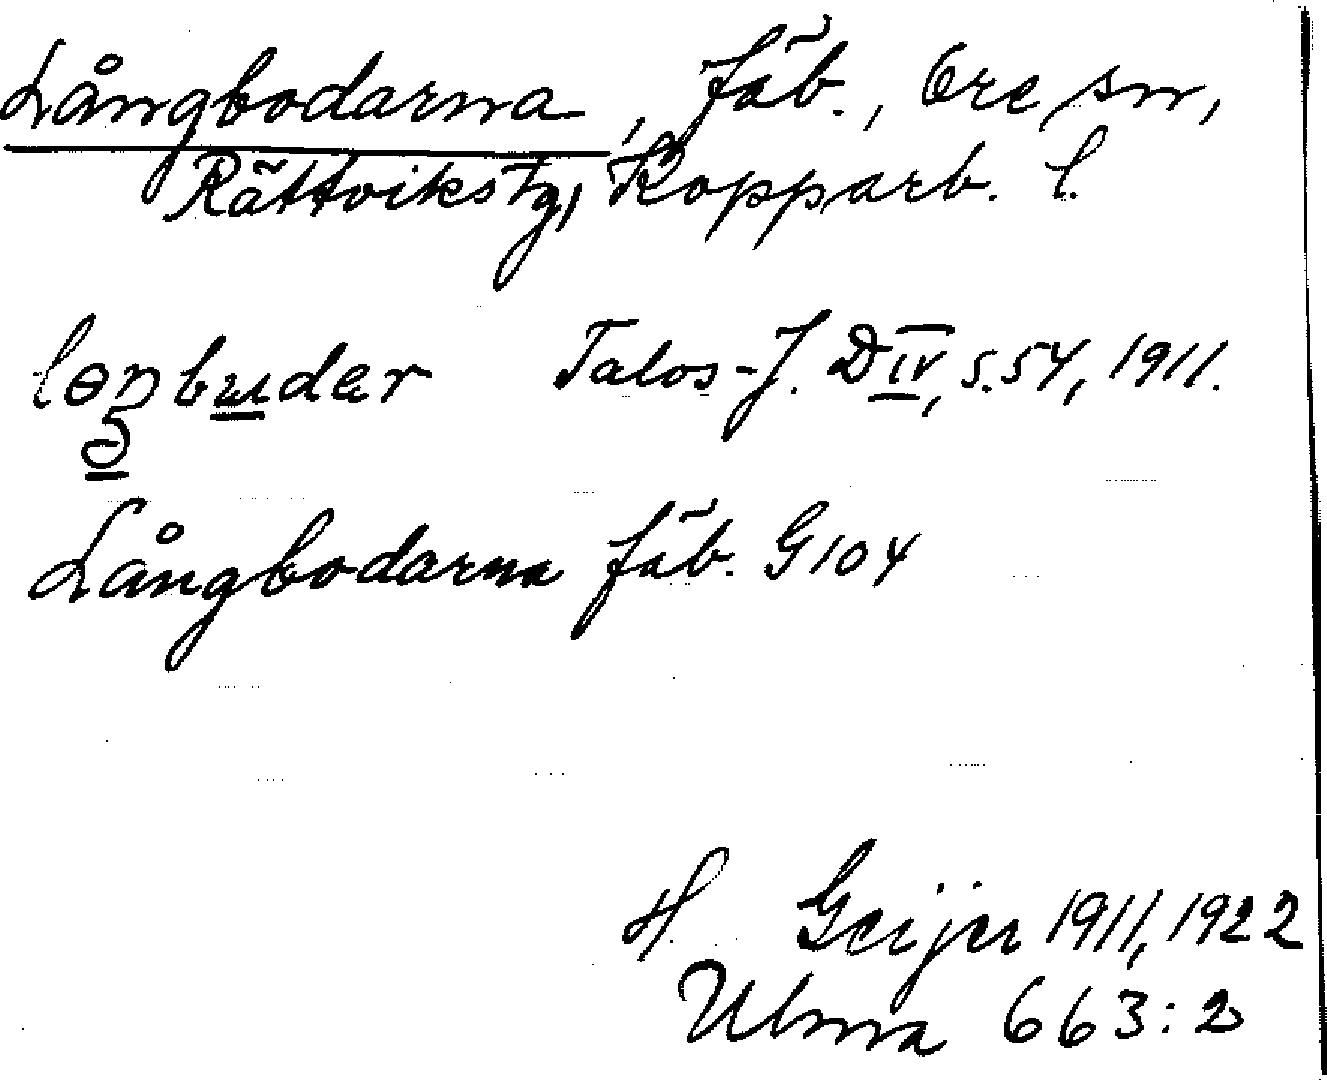 Långbodarna, fäb., Ore sn,
Rättviks tg, Kopparb. l.
Talos-J. D IV, s. 54, 1911.
Långbodarna fäb. G 104
H Geijer 1911, 1922
Ulma 663:2